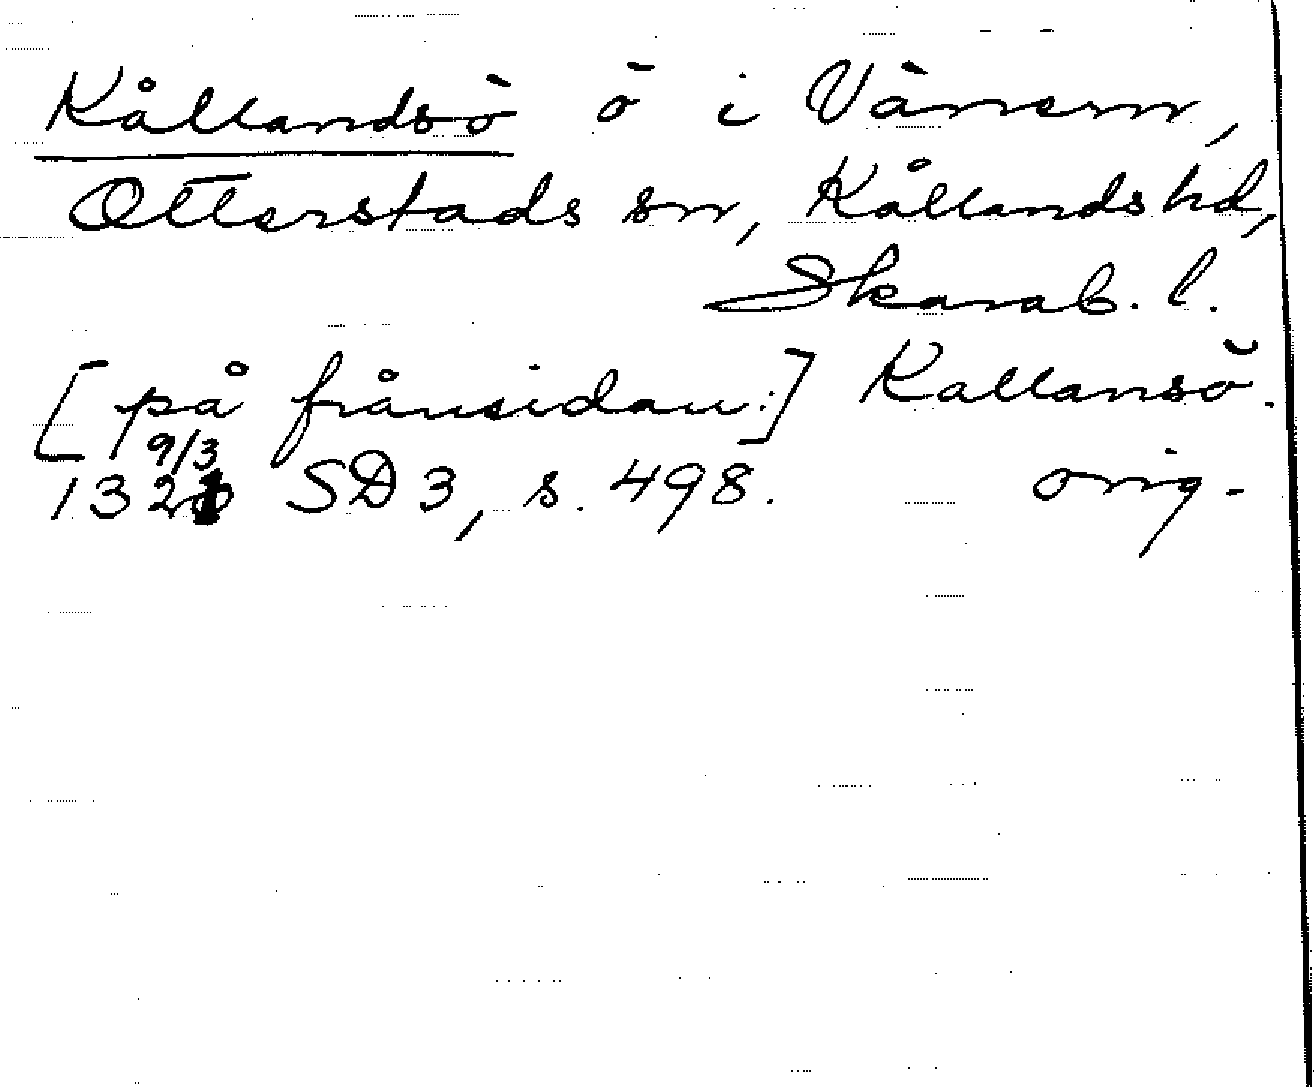 Kållandsö ö i Vänern,
Otterstads sn, Kållands hd,
Skarab. l.
[på frånsidan:] Kallansö.
9/3
1321 SD 3, s. 498. orig.